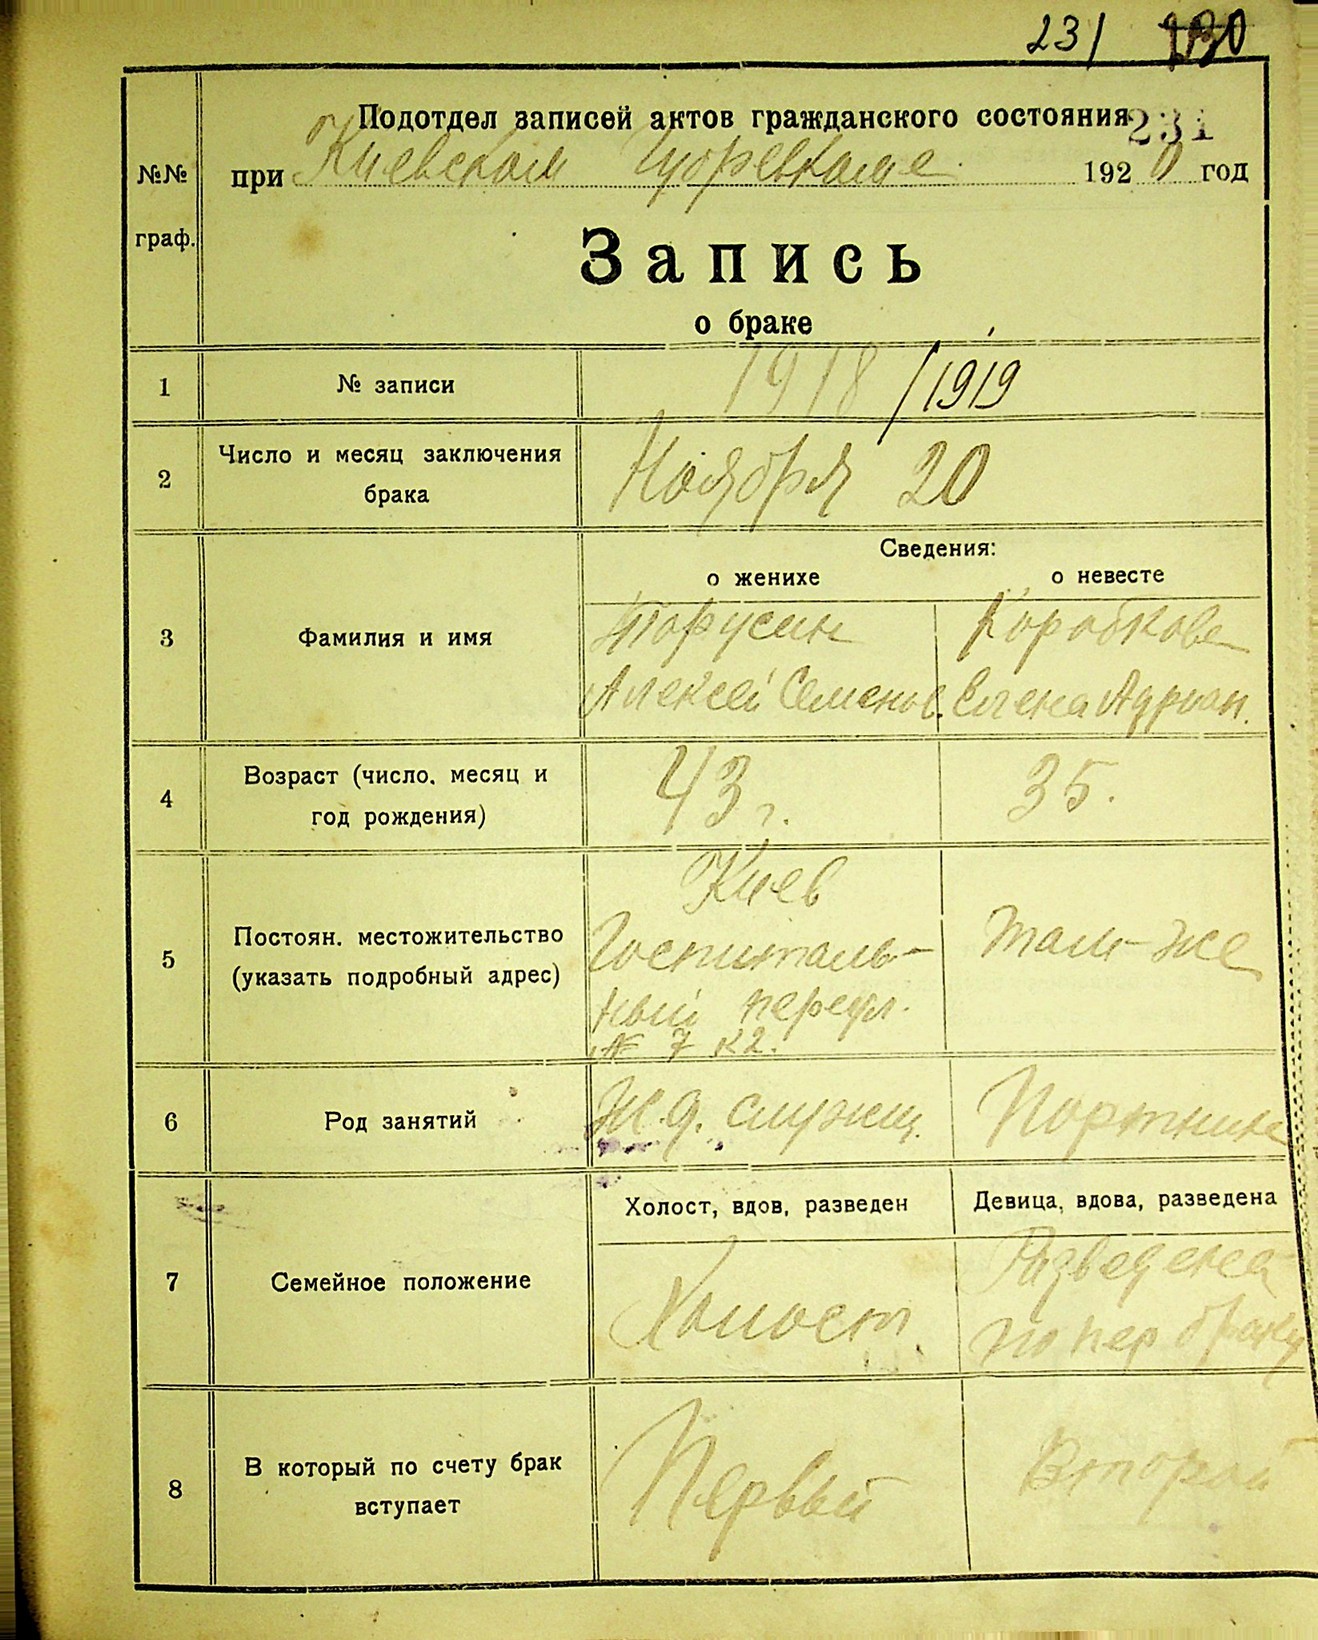 231
231
Подотдел записей актов гражданского состояния
№№ граф.
при Киевском Губревкоме 1920 год
Запись
о браке
1 № записи 1918/1919
2 Число и месяц заключения брака Ноября 20
Сведения:
о женихе о невесте
3 Фамилия и имя
Коробкова
Алексей Семенов. Елена Адриан.
4 Возраст (число, месяц и год рождения) 43 г. 35.
5 Постоян. местожительство (указать подробный адрес)
Киев
Госпиталь-
ный переул.
№ 7 к 2.
Там-же
6 Род занятий Ж.д. служащ. Портниха
Холост, вдов, разведен Девица, вдова, разведена
7 Семейное положение Холост
Разведена
по пер браку
8 В который по счету брак вступает Первый Второй